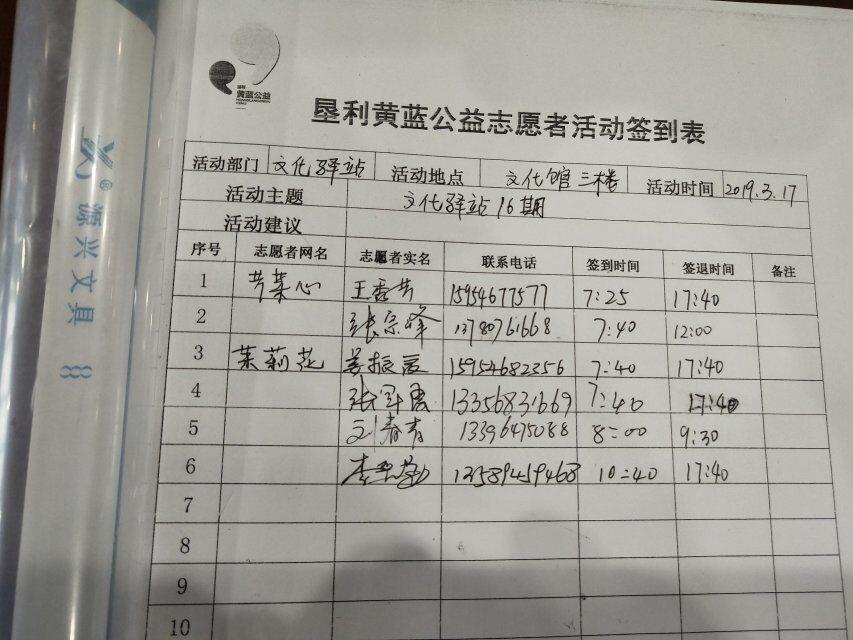 源兴文具
黄蓝公益
垦利黄蓝公益志愿者活动签到表
活动部门 文化驿站 活动地点 文化馆三楼 活动时间 2019.3.17
活动主题 文化驿站16期
活动建议
序号 志愿者网名 志愿者实名 联系电话 签到时间 签退时间 备注
1 芳菜心 王香芳 15954677577 7:25 17:40
2 张宗峰 13780761668 7:40 12:00
3 茉莉花 15954682356 7:40 17:40
4 13356831669 7:40 17:40
5 刘春青 13396475088 8:00 9:30
6 17:40 10:40
7
8
9
10